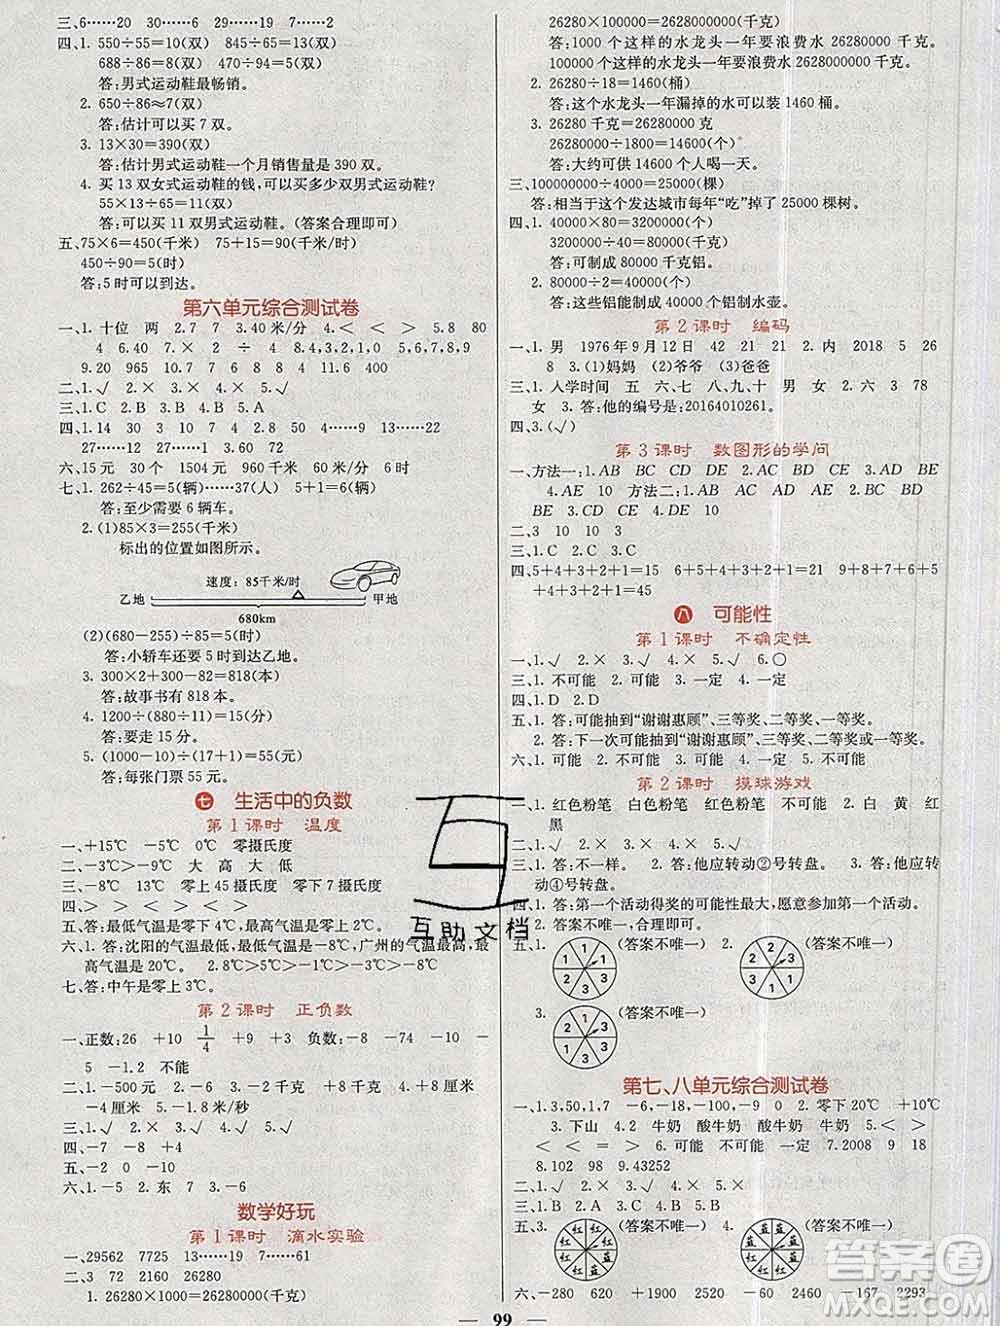 三、6……20　30……6　29……19　7……51
四、1. 550÷55=10(双)　845÷65=13(双)
688÷86=8(双)　470÷94=5(双)
答:男式运动鞋最畅销。
2. 650÷86≈7(双)
答:估计可以买 7 双。
3. 13×30=390(双)
答:估计男式运动鞋一个月销售量是 390 双。
4. 买 13 双女式运动鞋的钱,可以买多少双男式运动鞋?
55×13÷65=11(双)
答:可以买 11 双男式运动鞋。(答案合理即可)
五、75×6=450(千米)　75+15=90(千米/时)
450÷90=5(时)
答:5 时可以到达。
第六单元综合测试卷
一、1. 十位　两　2.7　7　3.40 米/分　4.＜　＜　＞　5.8　80
4　6.40　7.　×　2　÷　4　8.4,3,2,1,0　9,8,7,6,5
9.20　965　10.7　7　11.360　120　660
二、1.√　2.×　3.×　4.×　5.√
三、1.C　2.B　3.A　4.B　5.A
四、1.14　30　3　10　7　4　2.50　4……50　4……23　9……12
27……12　27……1　3.60　72
六、15 元　30 个　1504 元　960 千米　60 千米/分　6 时
七、1. 262÷45=5(辆)……37(人)　5+1=6(辆)
答:至少需要 6 辆车。
2. (1)85×3=255(千米)
标出的位置如图所示。
速度：85千米/时
乙地　甲地
680km
(2)(680-255)÷85=5(时)
答:小轿车还要 5 时到达乙地。
3. 300×2+300-82=818(本)
答:故事书有 818 本。
4. 1200÷(880÷11)=15(分)
答:要走 15 分。
5. (1000-10)÷(17+1)=55(元)
答:每张门票 55 元。
七　生活中的负数
第 1 课时　温度
一、+15℃　-5℃　0℃　零摄氏度
二、-3℃＞-9℃　大　高　大　低
三、-8℃　13℃　零上 45 摄氏度　零下 7 摄氏度
四、＞　＞　＞　＜　＜　＞
五、答:最低气温是零下 4℃,最高气温是零上 5℃。
六、1. 答:沈阳的气温最低,最低气温是-8℃,广州的气温最高,最
高气温是 20℃。　2.8℃＞5℃＞-1℃＞-2℃＞-8℃
七、答:中午是零上 3℃。
第 2 课时　正负数
一、正数:26　+10　1/4　+9　+3　负数:-8　-74　-10　-
5　-1.2　不能
二、1.-500 元　2.+8 千克　+6 千克　-2 千克　3.+8 厘米
-4 厘米　4.0　5.-8 米/秒
三、1.√　2.×　3.√　4.√
四、-7　-8　+4
五、-2　0　-10
六、1.-5　2.东　7　3.-6
数学好玩
第 1 课时　滴水实验
一、29562　7725　13……19　7……61
二、3　72　2160　26280
1. 26280×1000=26280000(千克)
26280×100000=2628000000(千克)
答:1000 个这样的水龙头一年要浪费水 26280000 千克。
100000 个这样的水龙头一年要浪费水 2628000000 千克。
2. 26280÷18=1460(桶)
答:这个水龙头一年漏掉的水可以装 1460 桶。
3. 26280 千克=26280000 克
26280000÷1800=14600(个)
答:大约可供 14600 个人喝一天。
三、100000000÷4000=25000(棵)
答:相当于这个发达城市每年“吃”掉了 25000 棵树。
四、1. 40000×80=3200000(个)
3200000÷40=80000(千克)
答:可制成 80000 千克铝。
2. 80000÷2=40000(个)
答:这些铝能制成 40000 个铝制水壶。
第 2 课时　编码
一、1. 男　1976 年 9 月 12 日　42　21　21　2. 内　2018　5　26
8　3.(1)妈妈　(2)爷爷　(3)爸爸
三、1. 入学时间　五　六、七　八、九、十　男　女　2.06　3　78
女　3. 答:他的编号是:20164010261。
四、3.(√)
第 3 课时　数图形的学问
一、方法一:1.AB　BC　CD　DE　2.AC　BD　CE　3.AD　BE
4.AE　10　方法二:1.AB　AC　AD　AE　2.BC　BD
BE　3.CD　CE　4.DE　10
二、3　10　10　3
三、1.C　2.C　3.C　4.C
四、5+4+3+2+1=15　6+5+4+3+2+1=21　9+8+7+6+5
+4+3+2+1=45
八　可能性
第 1 课时　不确定性
一、1.√　2.×　3.√　4.×　5.√　6.○
三、1. 不可能　2. 可能　3. 一定　4. 一定
四、1.D　2.D
五、1. 答:可能抽到“谢谢惠顾”、三等奖、二等奖、一等奖。
2. 答:下一次可能抽到“谢谢惠顾”、三等奖、二等奖或一等奖。
六、1. 可能　不可能　2. 可能　一定　不可能
第 2 课时　摸球游戏
一、1. 红色粉笔　白色粉笔　红色粉笔　不可能　2. 白　黄　红
黑
二、1.√　2.×　3.×　4.×
三、1. 答:不一样。　2. 答:他应转动②号转盘。　3. 答:他应转
动④号转盘。
四、1. 答:第一个活动得奖的可能性最大,愿意参加第一个活动。
2. 答案不唯一,合理即可。
五、1.　(答案不唯一)　2.　(答案不唯一)
3.　(答案不唯一)
第七、八单元综合测试卷
一、1. 3,50,1,7　-6,-18,-100,-9　0　2. 零下 20℃　+10℃
3. 下山　4.2　牛奶　酸牛奶　酸牛奶　牛奶　5.＜　＞
＜　＜　=　＞　6. 可能　不可能　一定　7.2008　9　18
8.102　98　9.43252
二、1.√　2.×　3.√　4.√　5.×
三、1.B　2.A　3.C　4.C　5.A
五、3.　(答案不唯一)　4.　(答案不唯一)
六、-280　620　+1900　2520　-2450　-167　2293
互助文档
答案圈
MXQE.COM
— 99 —